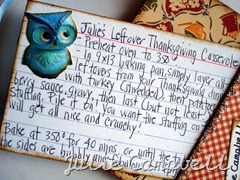 Julie's Leftover Thanksgiving Casserole
- Preheat oven to 350°
- In 9x13 baking pan, simply layer all
leftovers from your Thanksgiving
with Turkey (shredded), then potatoes,
berry sauce, gravy, then last (but not least)
stuffing. Pile it on! You want the stuffing on
will get all nice and crunchy!
Bake at 350° for 40 mins. or until the
the sides are bubbly and